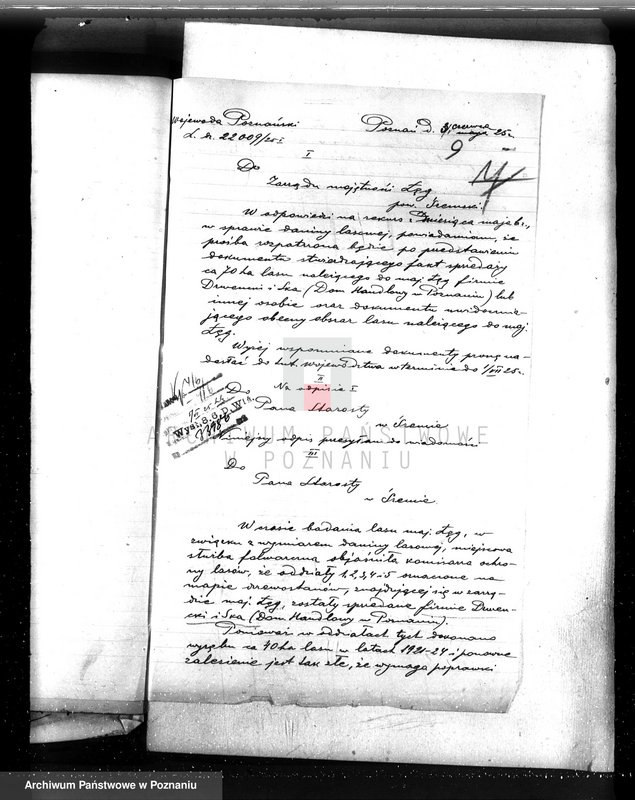 Wojewoda Poznański
Poznań d. czerwca 25r.
L. dz. 22009/25 I
9
I
Do
Zarządu majętności Łęg
pow. Śremski.
W odpowiedzi na rekurs z miesiąca maja br.,
w sprawie daniny lasowej, powiadamiam, że
prośba rozpatrzona będzie po przedstawieniu
dokumentu stwierdzającego fakt sprzedaży
ca 70 ha lasu należącego do maj. Łęg firmie
Drwenski i Ska (Dom Handlowy w Poznaniu) lub
innej osobie oraz dokumentu uwidocznia-
jącego obecny obszar lasu należącego do maj.
Łęg.
Wyżej wspomniane dokumenty proszę na-
desłać do tut. województwa w terminie do 1/VII 25r.
II
Na odpisie I
Do
Pana Starosty
w Śremie
Niniejszy odpis przesyłam do wiadomości
III
Do
Pana Starosty
w Śremie.
W czasie badania lasu maj. Łęg, w
związku z wymiarem daniny lasowej, miejscowa
służba folwarczna objaśniła komisarza ochro-
ny lasów, że oddziały 1,2,3,4 i 5 oznaczone na
mapie drzewostanów, znajdującej się w zarzą-
dzie maj. Łęg, zostały sprzedane firmie Drwen-
ski i Ska (Dom Handlowy w Poznaniu).
Ponieważ w oddziałach tych dokonano
wyrębu ca 40 ha lasu w latach 1921-24 i ponowne
zalesienie jest tak złe, że wymaga poprawki
ARCHIWUM PAŃSTWOWE
W POZNANIU
Archiwum Państwowe w Poznaniu